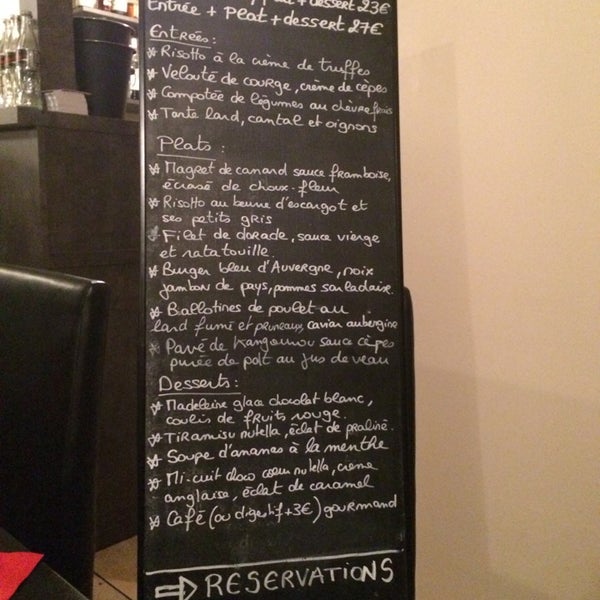 + dessert 23€
Entrée + Plat + dessert 27€
Entrées :
* Risotto à la crème de truffes
* Velouté de courge, crème de cèpes
* Compotée de légumes au chèvre frais
* Tarte lard, cantal et oignons
Plats :
* Magret de canard sauce framboise,
écrasé de choux-fleur
* Risotto au beurre d'escargot et
ses petits gris
* Filet de dorade, sauce vierge
et ratatouille.
* Burger bleu d'Auvergne, noix
jambon de pays, pommes sarladaise.
* Ballotines de poulet au
lard fumé et pruneaux, caviar aubergine
* Pavé de Kangourou sauce cèpes
purée de pdt au jus de veau
Desserts :
* Madeleine glace chocolat blanc,
coulis de fruits rouge.
* Tiramisu nutella, éclat de praliné.
* Soupe d'ananas à la menthe
* Mi-cuit choco coeur nutella, crème
anglaise, éclat de caramel
* Café (ou digestif +3€) gourmand
⇒ RESERVATIONS